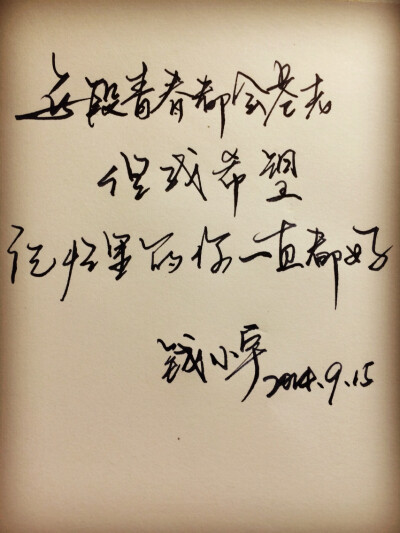 每段青春都会苍老
但我希望
记忆里的你一直都好
钱小宇 2014.9.15